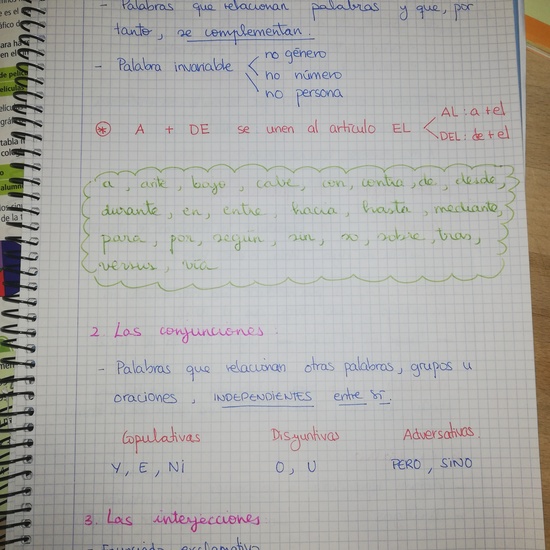 - Palabras que relacionan palabras y que, por
tanto, se complementan.
- Palabra invariable
no género
no número
no persona
* A + DE se unen al artículo EL
AL: a + el
DEL: de + el
a, ante, bajo, cabe, con, contra, de, desde,
durante, en, entre, hacia, hasta, mediante,
para, por, según, sin, so, sobre, tras,
versus, vía
2. Las conjunciones.
- Palabras que relacionan otras palabras, grupos u
oraciones, INDEPENDIENTES entre sí.
Copulativas Disyuntivas Adversativas.
Y, E, Ni O, U PERO, SINO
3. Las interjecciones